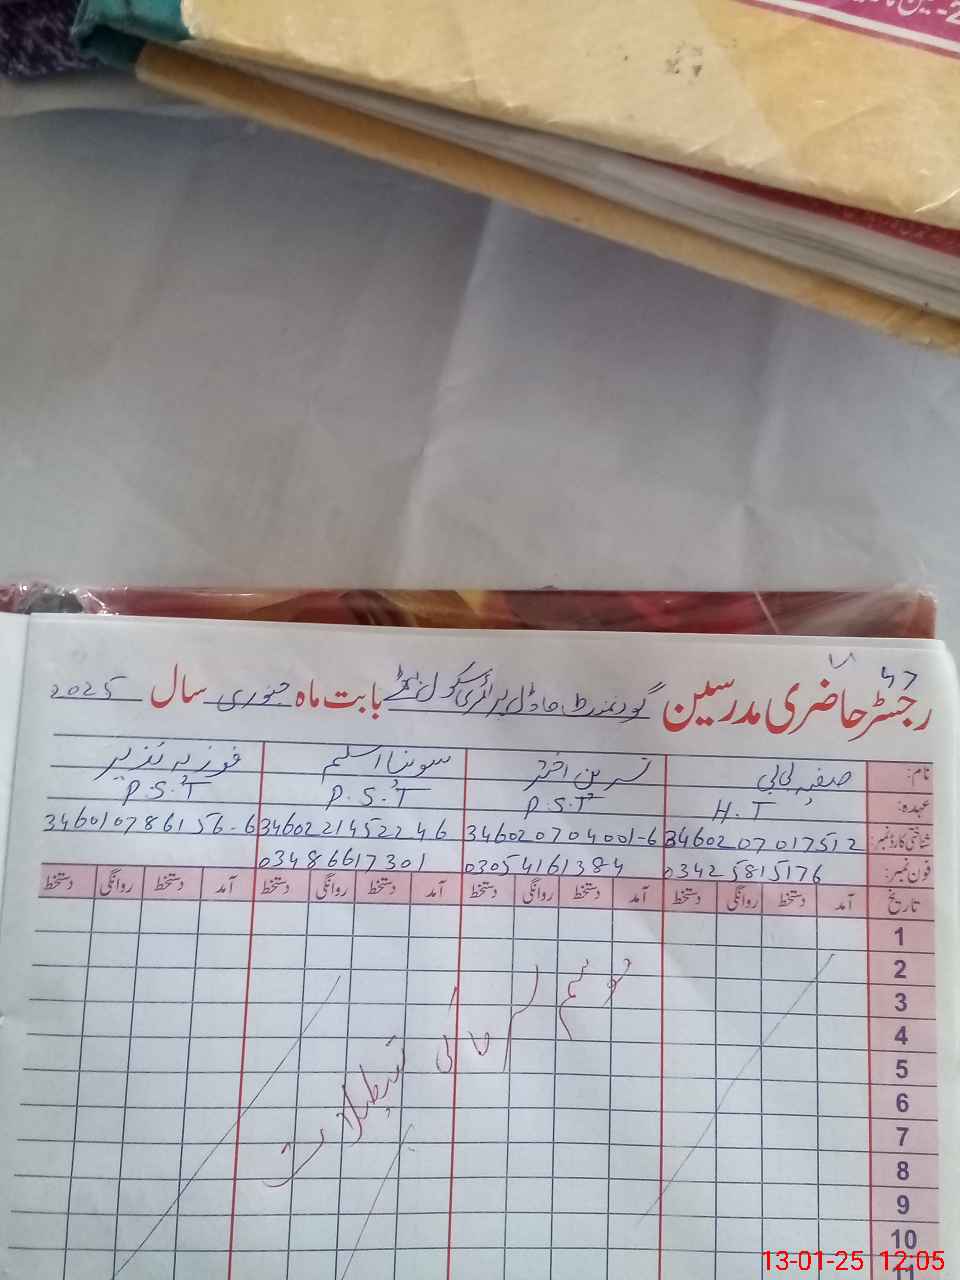 47
رجسٹر حاضری مدرسین گورنمنٹ ماڈل پرائمری سکول بابت ماہ جنوری سال 2025
نام: صفیہ بی بی نسرین اختر سونیا اسلم فوزیہ نذیر
عہدہ: H.T P.S.T P.S.T P.S.T
شناختی کارڈ نمبر: 3460207017512 346020704001-6 3460221452246 346010786156-6
فون نمبر: 03425815176 03054161384 03486617301
تاریخ آمد دستخط روانگی دستخط آمد دستخط روانگی دستخط آمد دستخط روانگی دستخط آمد دستخط روانگی دستخط
1
2
3
4
5
6
7
8
9
10
11
موسم سرمائی تعطیلات
13-01-25 12:05